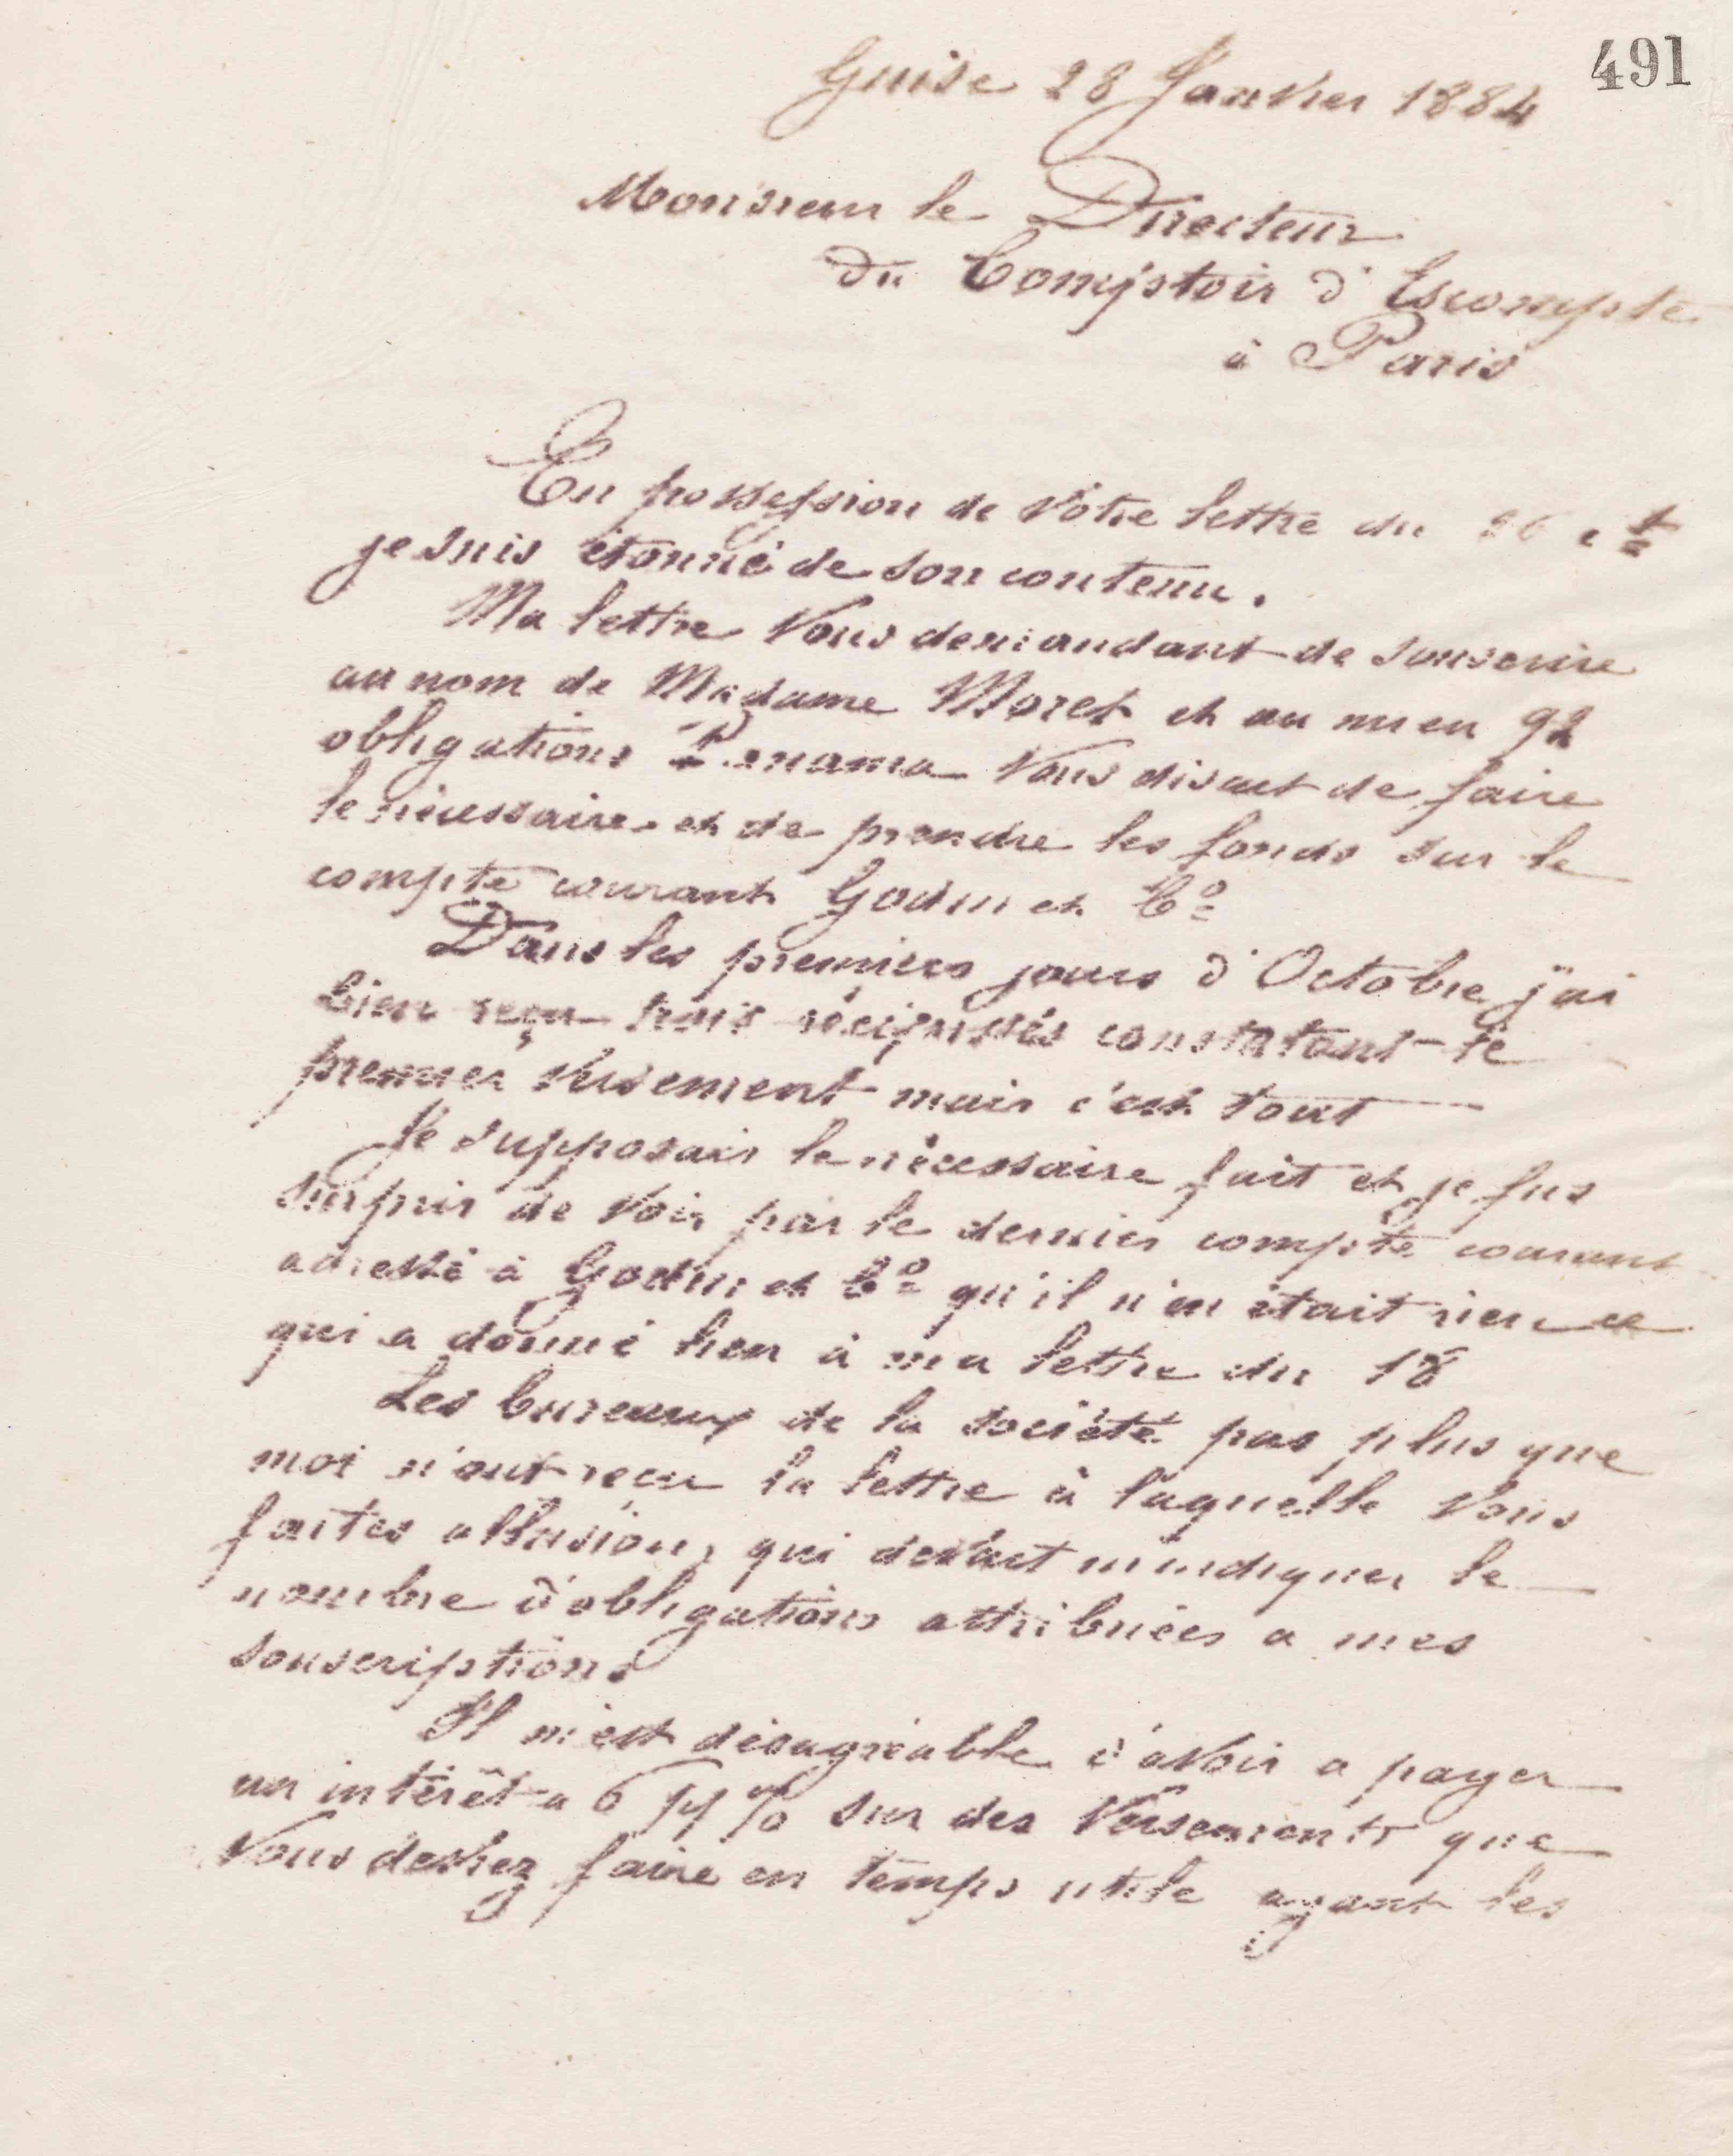 491
Guise 28 Janvier 1884
Monsieur le Directeur
du Comptoir d'Escompte
à Paris
En possession de votre lettre du 26 ct
je suis étonné de son contenu.
Ma lettre vous demandant de souscrire
au nom de Madame Moret et au mien 92
obligations Panama vous disait de faire
le nécessaire et de prendre les fonds sur le
compte courant Godin et Co
Dans les premiers jours d'Octobre j'ai
bien reçu trois récépissés constatant le
premier versement mais c'est tout
Je supposais le nécessaire fait et je fus
surpris de voir par le dernier compte courant
adressé à Godin et Co qu'il n'en était rien ce
qui a donné lieu à ma lettre du 18
Les bureaux de la société pas plus que
moi n'ont reçu la lettre à laquelle vous
faites allusion, qui devait m'indiquer le
nombre d'obligations attribuées a mes
souscriptions
Il m'est désagréable d'avoir a payer
un intérêt a 6 % sur des versements que
vous deviez faire en temps utile ayant les